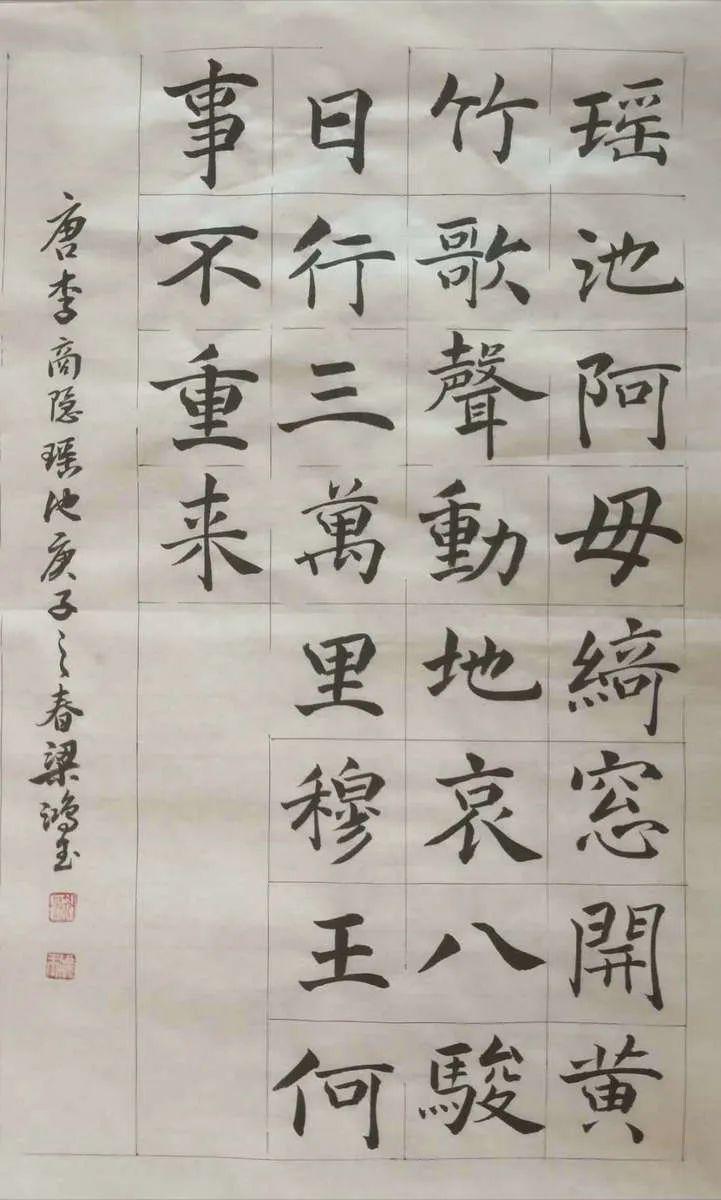 瑶池阿母綺窓開黄
竹歌聲動地哀八駿
日行三萬里穆王何
事不重来
唐李商隐瑶池庚子之春梁鸿玉